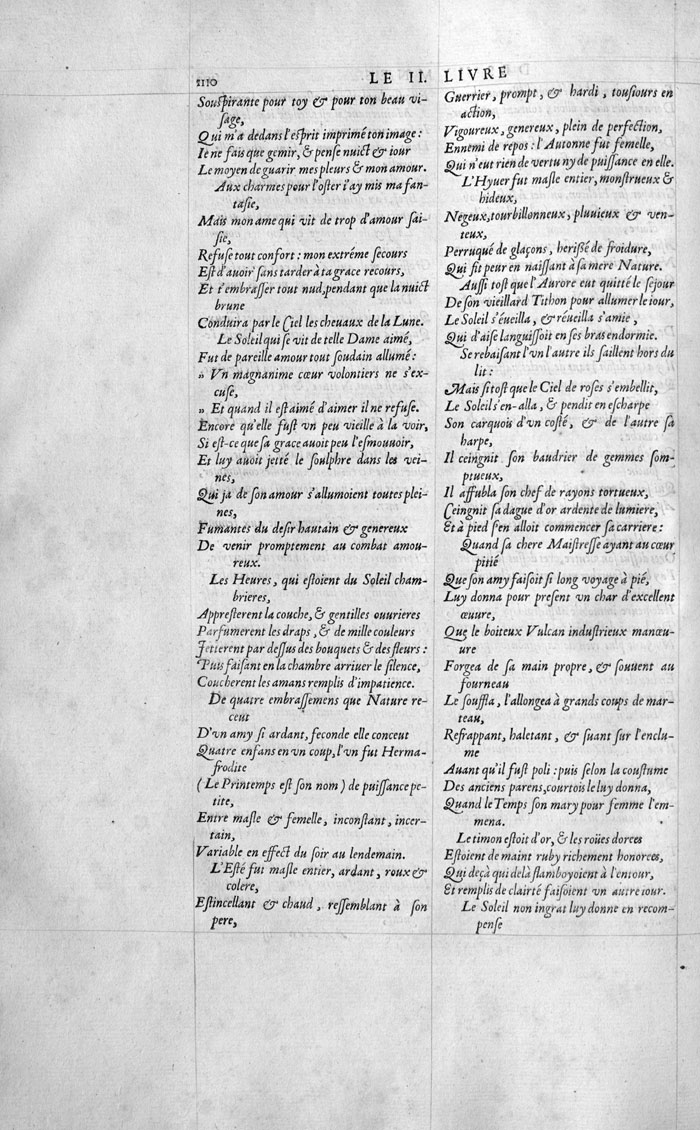 2110 LE II. LIVRE
Souspirante pour toy & pour ton beau vi-
sage,
Qui m'a dedans l'esprit imprimé ton image:
Ie ne fais que gemir, & pense nuict & iour
Le moyen de guarir mes pleurs & mon amour.
Aux charmes pour l'oster i'ay mis ma fan-
tasie,
Mais mon ame qui vit de trop d'amour sai-
sie,
Refuse tout confort: mon extréme secours
Est d'auoir sans tarder à ta grace recours,
Et t'embrasser tout nud, pendant que la nuict
brune
Conduira par le Ciel les cheuaux de la Lune.
Le Soleil qui se vit de telle Dame aimé,
Fut de pareille amour tout soudain allumé:
» Vn magnanime cœur volontiers ne s'ex-
cuse,
» Et quand il est aimé d'aimer il ne refuse.
Encore qu'elle fust vn peu vieille à la voir,
Si est-ce que sa grace auoit peu l'esmouuoir,
Et luy auoit jetté le soulphre dans les vei-
nes,
Qui ja de son amour s'allumoient toutes plei-
nes,
Fumantes du desir hautain & genereux
De venir promptement au combat amou-
reux.
Les Heures, qui estoient du Soleil cham-
brieres,
Appresterent la couche, & gentilles ouurieres
Parfumerent les draps, & de mille couleurs
Jetterent par dessus des bouquets & des fleurs:
Puis faisant en la chambre arriuer le silence,
Coucherent les amans remplis d'impatience.
De quatre embrassemens que Nature re-
ceut
D'vn amy si ardant, feconde elle conceut
Quatre enfans en vn coup, l'vn fut Herma-
frodite
(Le Printemps est son nom) de puissance pe-
tite,
Entre masle & femelle, inconstant, incer-
tain,
Variable en effect du soir au lendemain.
L'Esté fut masle entier, ardant, roux &
colere,
Estincellant & chaud, ressemblant à son
pere,
Guerrier, prompt, & hardi, tousiours en
action,
Vigoureux, genereux, plein de perfection,
Ennemi de repos: l'Autonne fut femelle,
Qui n'eut rien de vertu ny de puissance en elle.
L'Hyuer fut masle entier, monstrueux &
hideux,
Negeux, tourbillonneux, pluuieux & ven-
teux,
Perruqué de glaçons, herissé de froidure,
Qui fit peur en naissant à sa mere Nature.
Aussi tost que l'Aurore eut quitté le sejour
De son vieillard Tithon pour allumer le iour,
Le Soleil s'éueilla, & réueilla s'amie,
Qui d'aise languissoit en ses bras endormie.
Se rebaisant l'vn l'autre ils saillent hors du
lit:
Mais si tost que le Ciel de roses s'embellit,
Le Soleil s'en-alla, & pendit en escharpe
Son carquois d'vn costé, & de l'autre sa
harpe,
Il ceingnit son baudrier de gemmes som-
ptueux,
Il affubla son chef de rayons tortueux,
Ceingnit sa dague d'or ardente de lumiere,
Et à pied s'en alloit commencer sa carriere:
Quand sa chere Maistresse ayant au cœur
pitié
Que son amy faisoit si long voyage à pié,
Luy donna pour present vn char d'excellent
œuure,
Que le boiteux Vulcan industrieux manœu-
ure
Forgea de sa main propre, & souuent au
fourneau
Le souffla, l'allongea à grands coups de mar-
teau,
Refrappant, haletant, & suant sur l'enclu-
me
Auant qu'il fust poli: puis selon la coustume
Des anciens parens, courtois le luy donna,
Quand le Temps son mary pour femme l'em-
mena.
Le timon estoit d'or, & les roües dorees
Estoient de maint ruby richement honorees,
Qui deçà qui delà flamboyoient à l'entour,
Et remplis de clairté faisoient vn autre iour.
Le Soleil non ingrat luy donne en recom-
pense